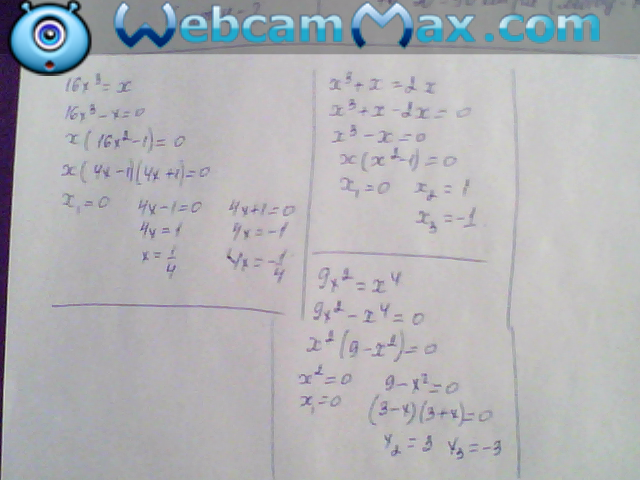 WebcamMax.com
16x³ = x
16x³ - x = 0
x(16x² - 1) = 0
x(4x - 1)(4x + 1) = 0
x₁ = 0 4x - 1 = 0 4x + 1 = 0
4x = 1 4x = -1
x = 1/4 4x = -1/4
x³ + x = 2x
x³ + x - 2x = 0
x³ - x = 0
x(x² - 1) = 0
x₁ = 0 x₂ = 1
x₃ = -1
9x² = x⁴
9x² - x⁴ = 0
x²(9 - x²) = 0
x² = 0 9 - x² = 0
x₁ = 0 (3 - x)(3 + x) = 0
x₂ = 3 x₃ = -3